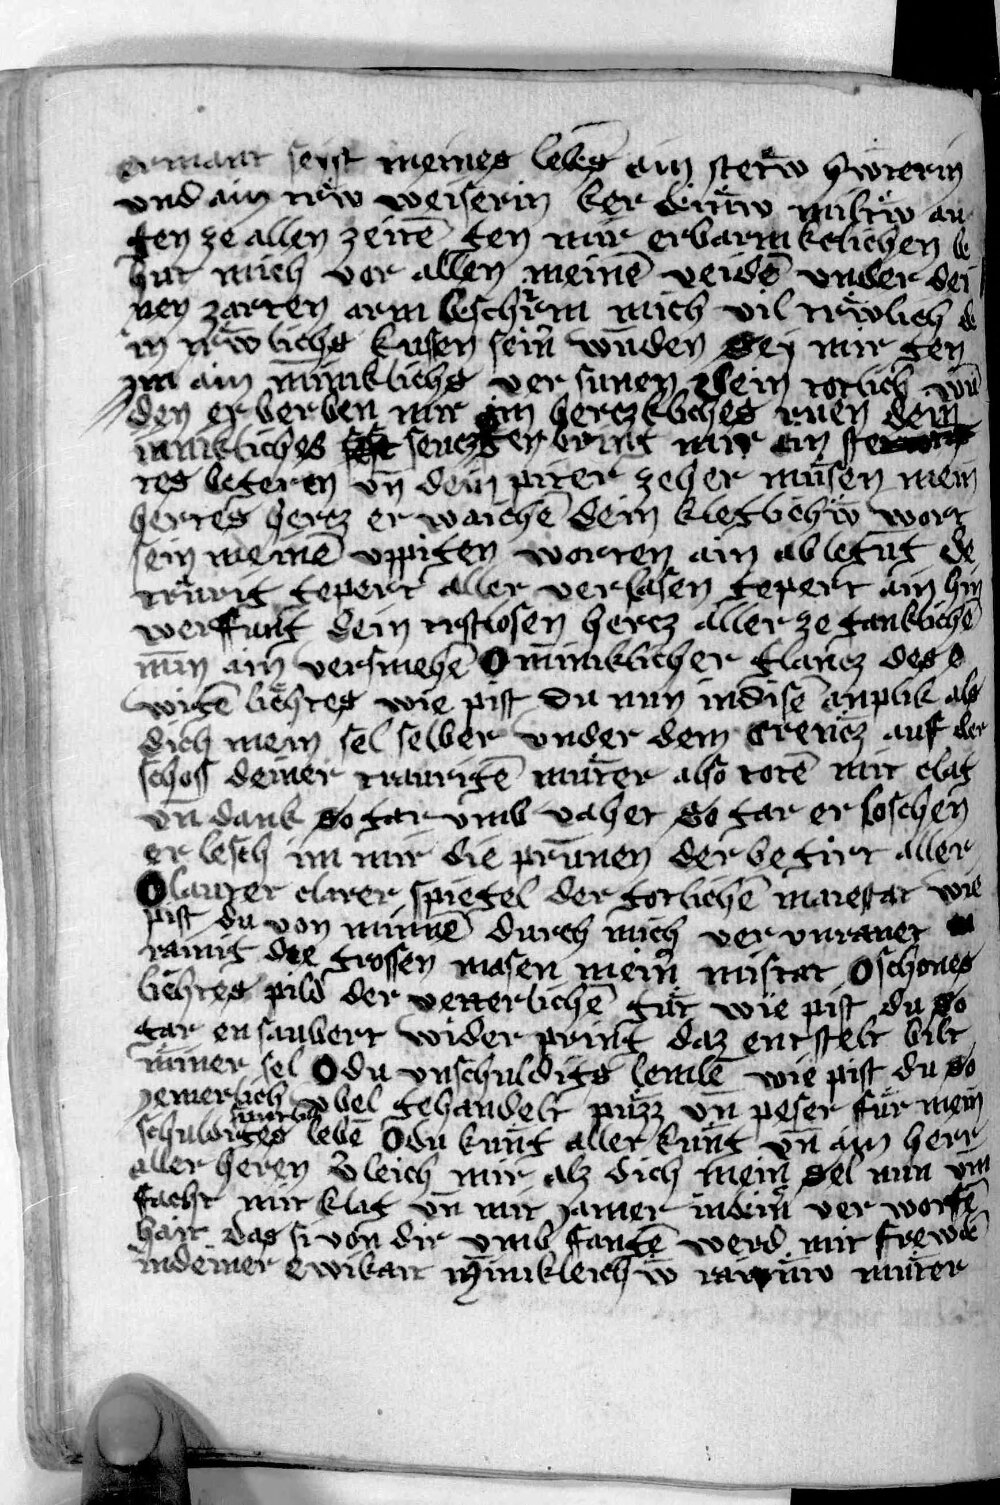 ermant seist meines lebēs ain stetw̃ hw̃terin
vnd ain trw̃ weiserin ker dinw̃ miltw̃ au
gen ze allen zeitē gen mir erbarmkclichen be
hut mich vor allen meinē veidē vnder dei
nen zarten arm beschirm mich vil trw̃lich de
in trw̃lichs kusen seinr̄ wunden sey mir gen
im ain miniklichs versunen dein totlich wu
den erberben mir ain herczkliches ruen dein
innikliches senczgen bring mir ain ste
tes begeren vn̄ dein piter zeher müsen mein
hertes hercz er waichē dein kleglichw̃ wort
sein meinē vppigen worten ain ablegūg de
trúrig gepert aller verlasen gepert ain hin
werffung dein rostlosen hercz aller zegänklichē
min ain versmehē O miniklicher glancz des e
wigē liechtes wie pist du nun indisē anplik als
dich mein sel selber vnder dem crencz auf der
schoss deiner traurigē muter also totē mit clag
vn̄ dank so gar vmb vahet so gar er loschen
er lesch im mir die prunen der begirt aller
O lauter clarer spiegel der gotlichē maiestat wie
pist du von minnē durch mich ver vnraнet
rainig die grossen masen meinr̄ mistat O schones
liehtes pild der vetterlichē güt wie pist du so
gar ensaubert wider pring daz entstelt bilt
miner sel O du vnschuldigs lemlē wie pist du so
yemerlich vbel gehandelt püzz vn̄ peser für mein
schuldiges lebē O du kung aller kung vn̄ ain herr
aller heren verleich mir alz dich mein sel nun vm
facht mit klag vn̄ mit yamer indeinr̄ ver worfē
hait das si von dir vmb fangē werd mit frewdē
indeiner ewikait miniklichw̃ rainw̃ muter